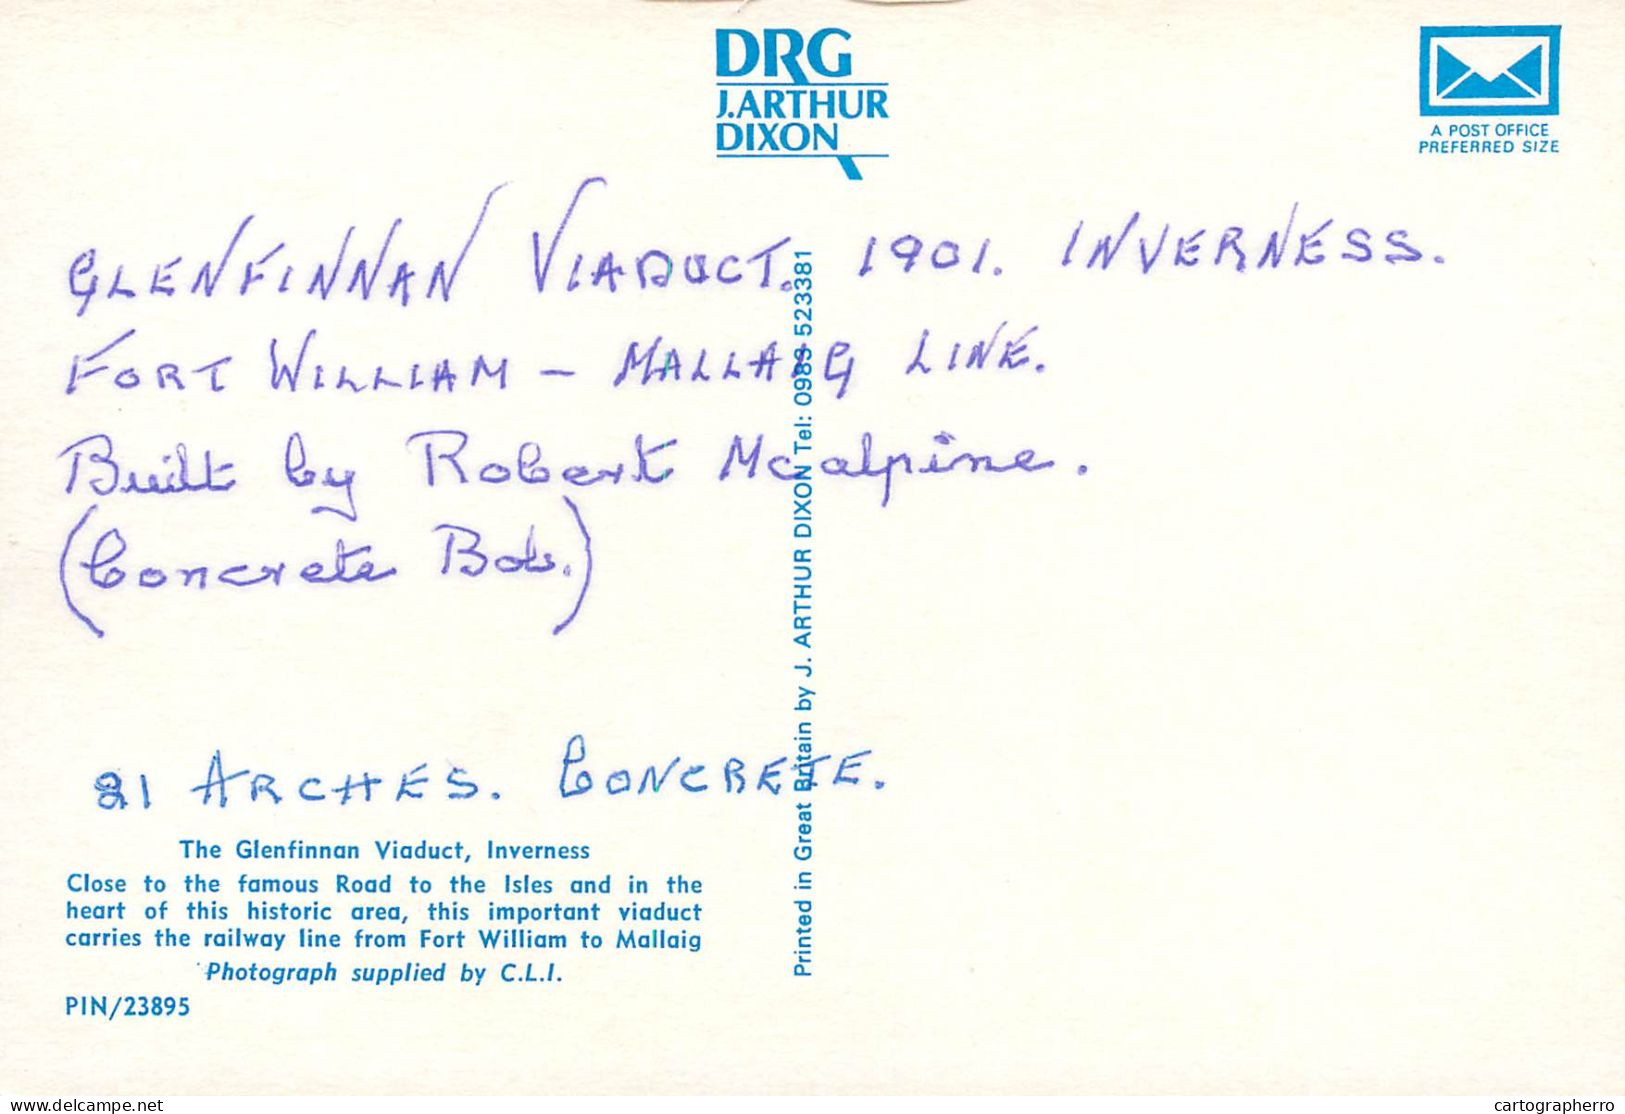 DRG
J.ARTHUR
DIXON
A POST OFFICE
PREFERRED SIZE
GLENFINNAN VIADUCT. 1901. INVERNESS.
FORT WILLIAM - MALLAIG LINE.
Built by Robert Mcalpine.
(Concrete Bob.)
21 ARCHES. CONCRETE.
The Glenfinnan Viaduct, Inverness
Close to the famous Road to the Isles and in the
heart of this historic area, this important viaduct
carries the railway line from Fort William to Mallaig
Photograph supplied by C.L.I.
PIN/23895
Printed in Great Britain by J. ARTHUR DIXON Tel: 0983 523381
delcampe.net
cartographerro